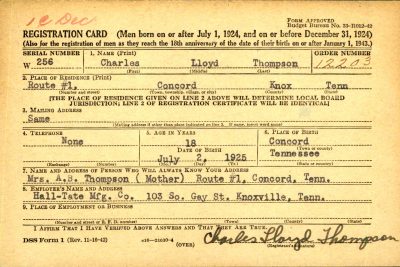 1c Dec
FORM APPROVED
Budget Bureau No. 33-R012-42
REGISTRATION CARD (Men born on or after July 1, 1924, and on or before December 31, 1924)
(Also for the registration of men as they reach the 18th anniversary of the date of their birth on or after January 1, 1943.)
SERIAL NUMBER 1. NAME (Print) ORDER NUMBER
W 256 Charles Lloyd Thompson 12203
(First) (Middle) (Last)
2. PLACE OF RESIDENCE (Print)
Route #1, Concord Knox Tenn
(Number and street) (Town, township, village, or city) (County) (State)
[THE PLACE OF RESIDENCE GIVEN ON LINE 2 ABOVE WILL DETERMINE LOCAL BOARD
JURISDICTION; LINE 2 OF REGISTRATION CERTIFICATE WILL BE IDENTICAL]
3. MAILING ADDRESS
Same
[Mailing address if other than place indicated on line 2. If same, insert word same]
4. TELEPHONE 5. AGE IN YEARS 6. PLACE OF BIRTH
None 18 Concord
DATE OF BIRTH (Town or county)
July 2, 1925 Tennessee
(Exchange) (Number) (Mo.) (Day) (Yr.) (State or country)
7. NAME AND ADDRESS OF PERSON WHO WILL ALWAYS KNOW YOUR ADDRESS
Mrs. A.B. Thompson ( Mother) Route #1, Concord, Tenn.
8. EMPLOYER'S NAME AND ADDRESS
Hall-Tate Mfg. Co. 103 So. Gay St. Knoxville, Tenn.
9. PLACE OF EMPLOYMENT OR BUSINESS
(Number and street or R. F. D. number) (Town) (County) (State)
I AFFIRM THAT I HAVE VERIFIED ABOVE ANSWERS AND THAT THEY ARE TRUE.
DSS Form 1 (Rev. 11-16-42) (OVER) Charles Lloyd Thompson
(Registrant's signature)